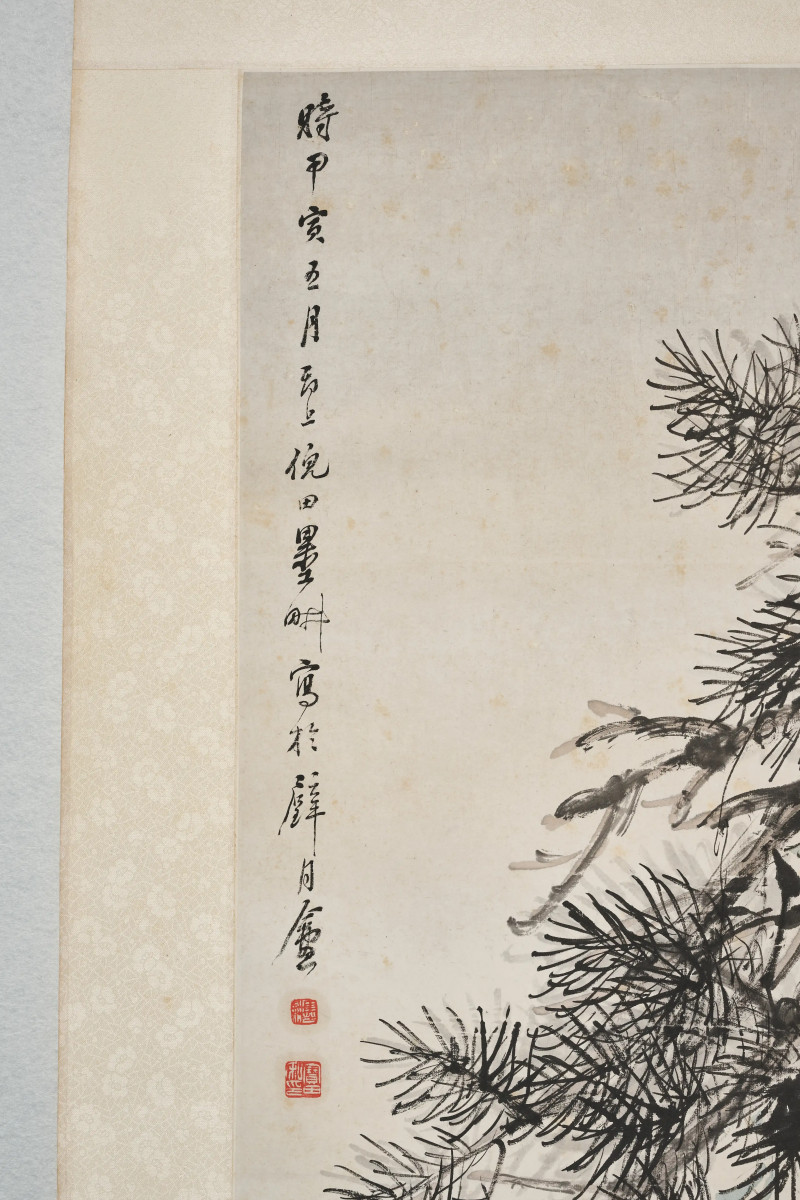 時甲寅五月邗上倪田墨畊寫於璧月盦